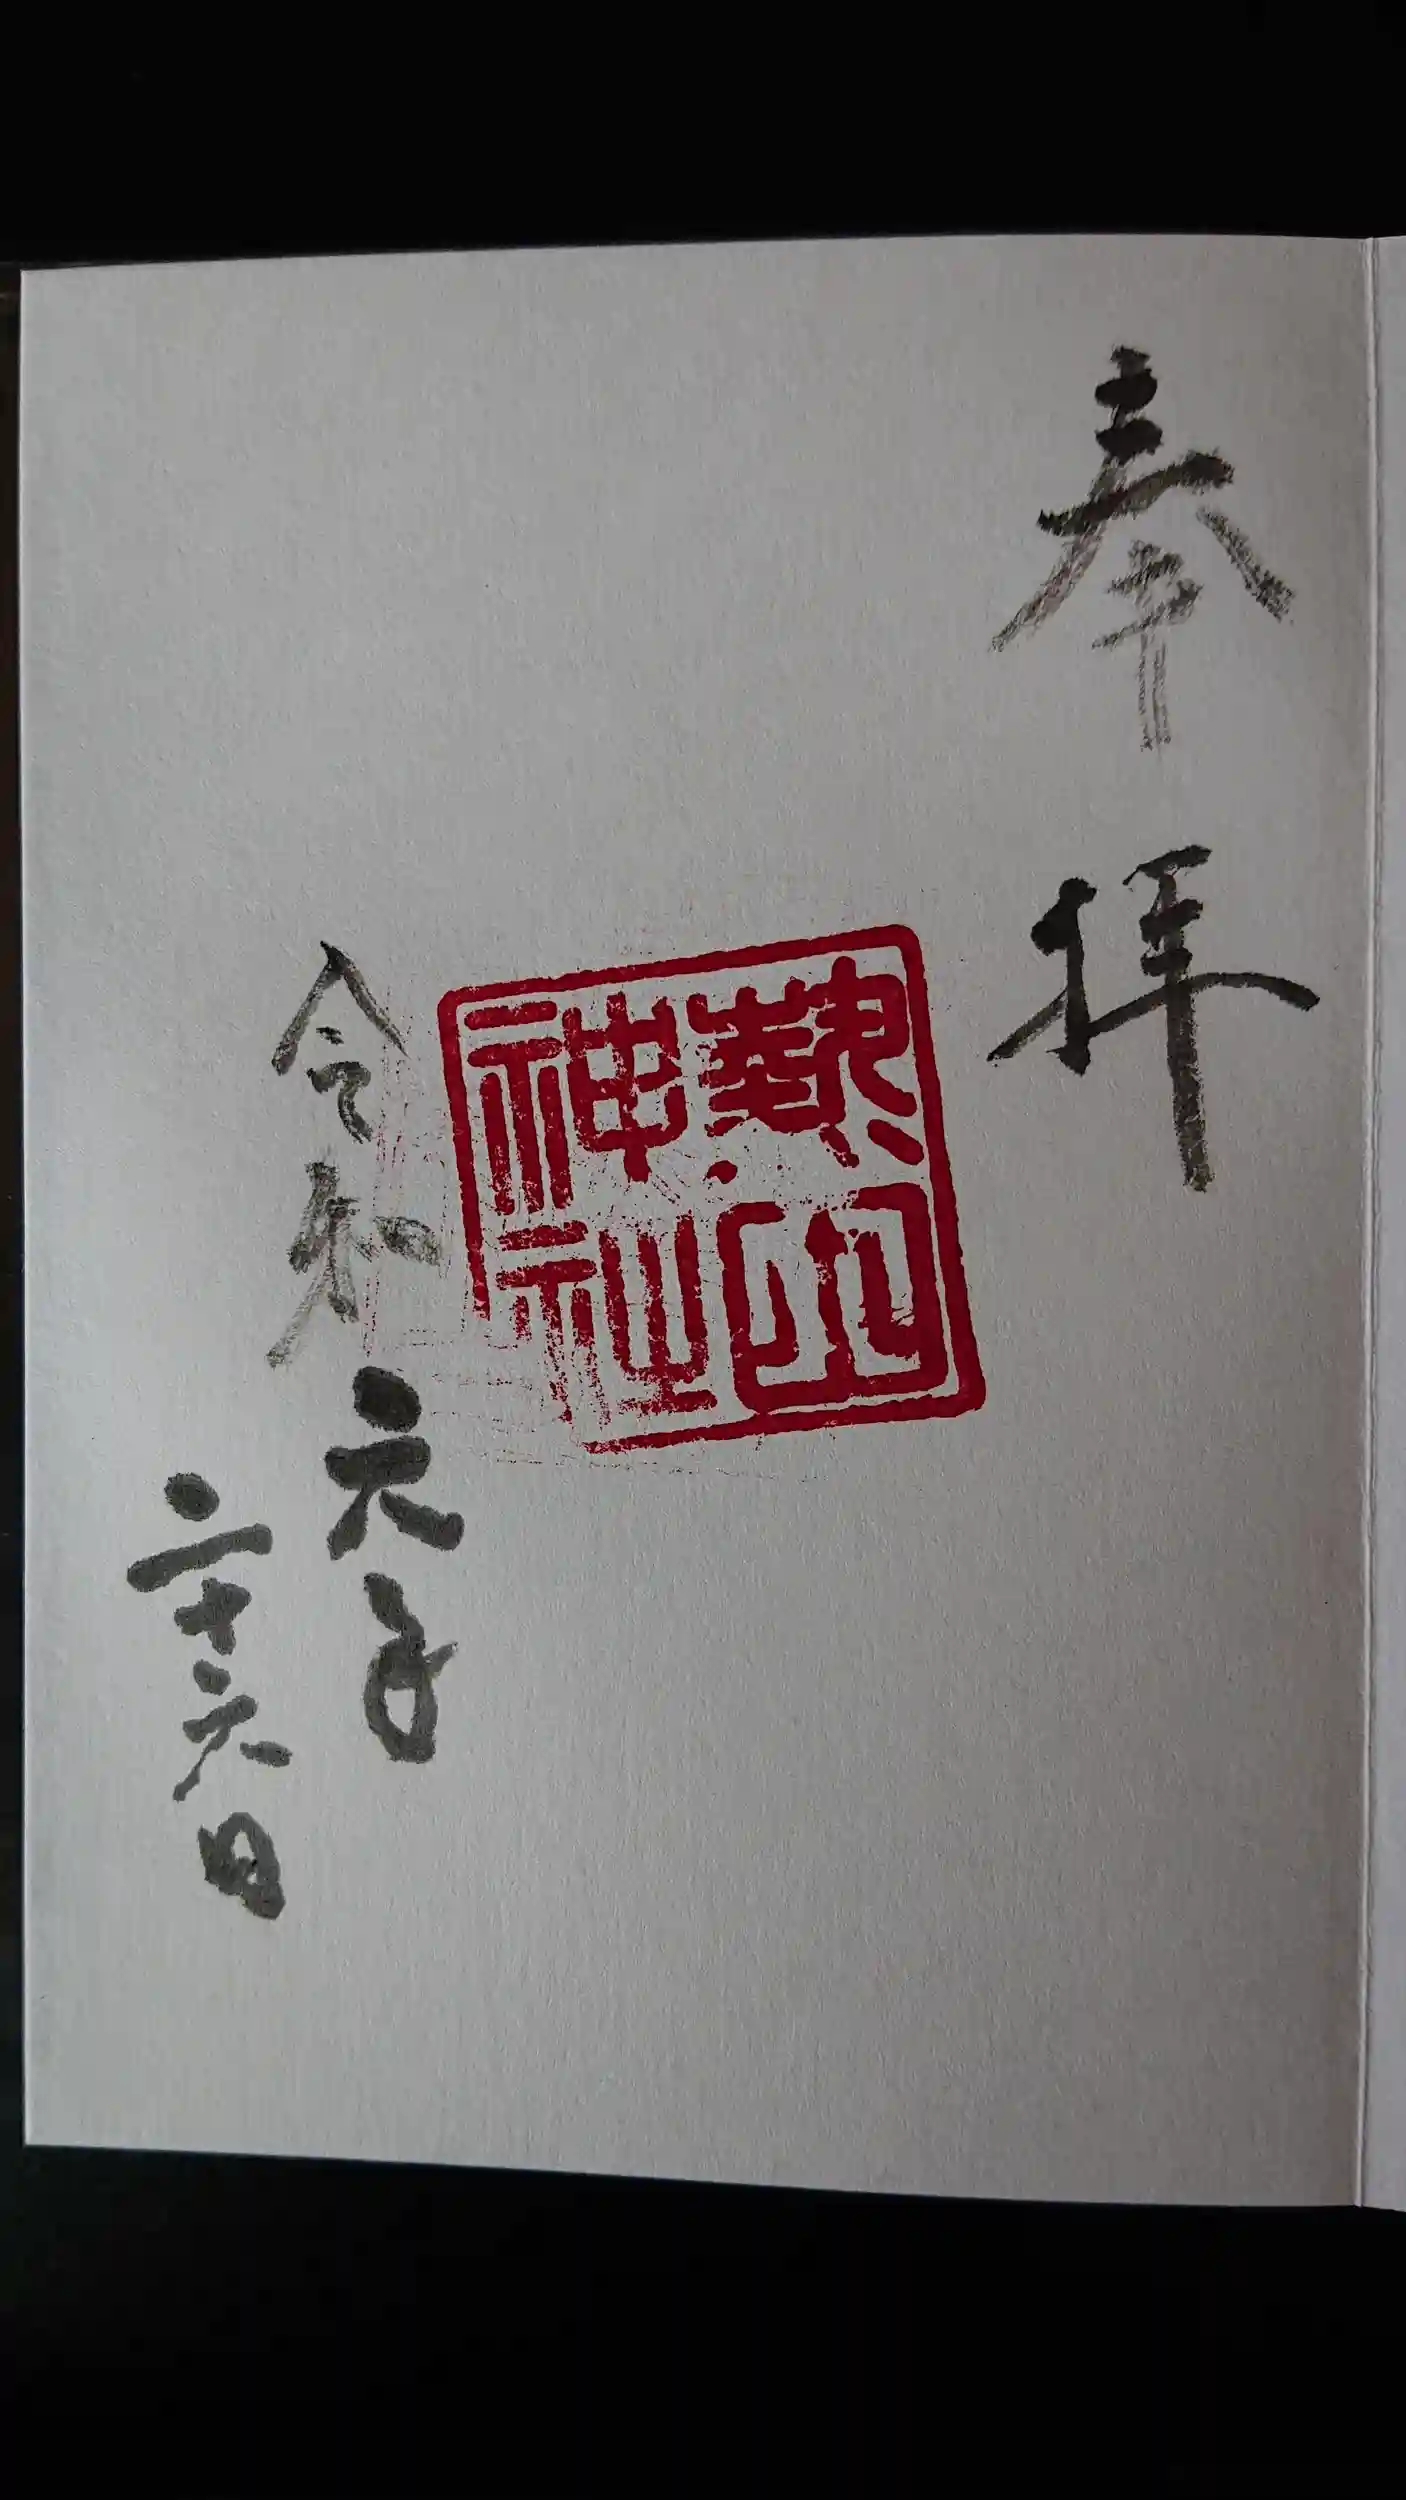 奉拝
熱
神社
令和六年
二十六日